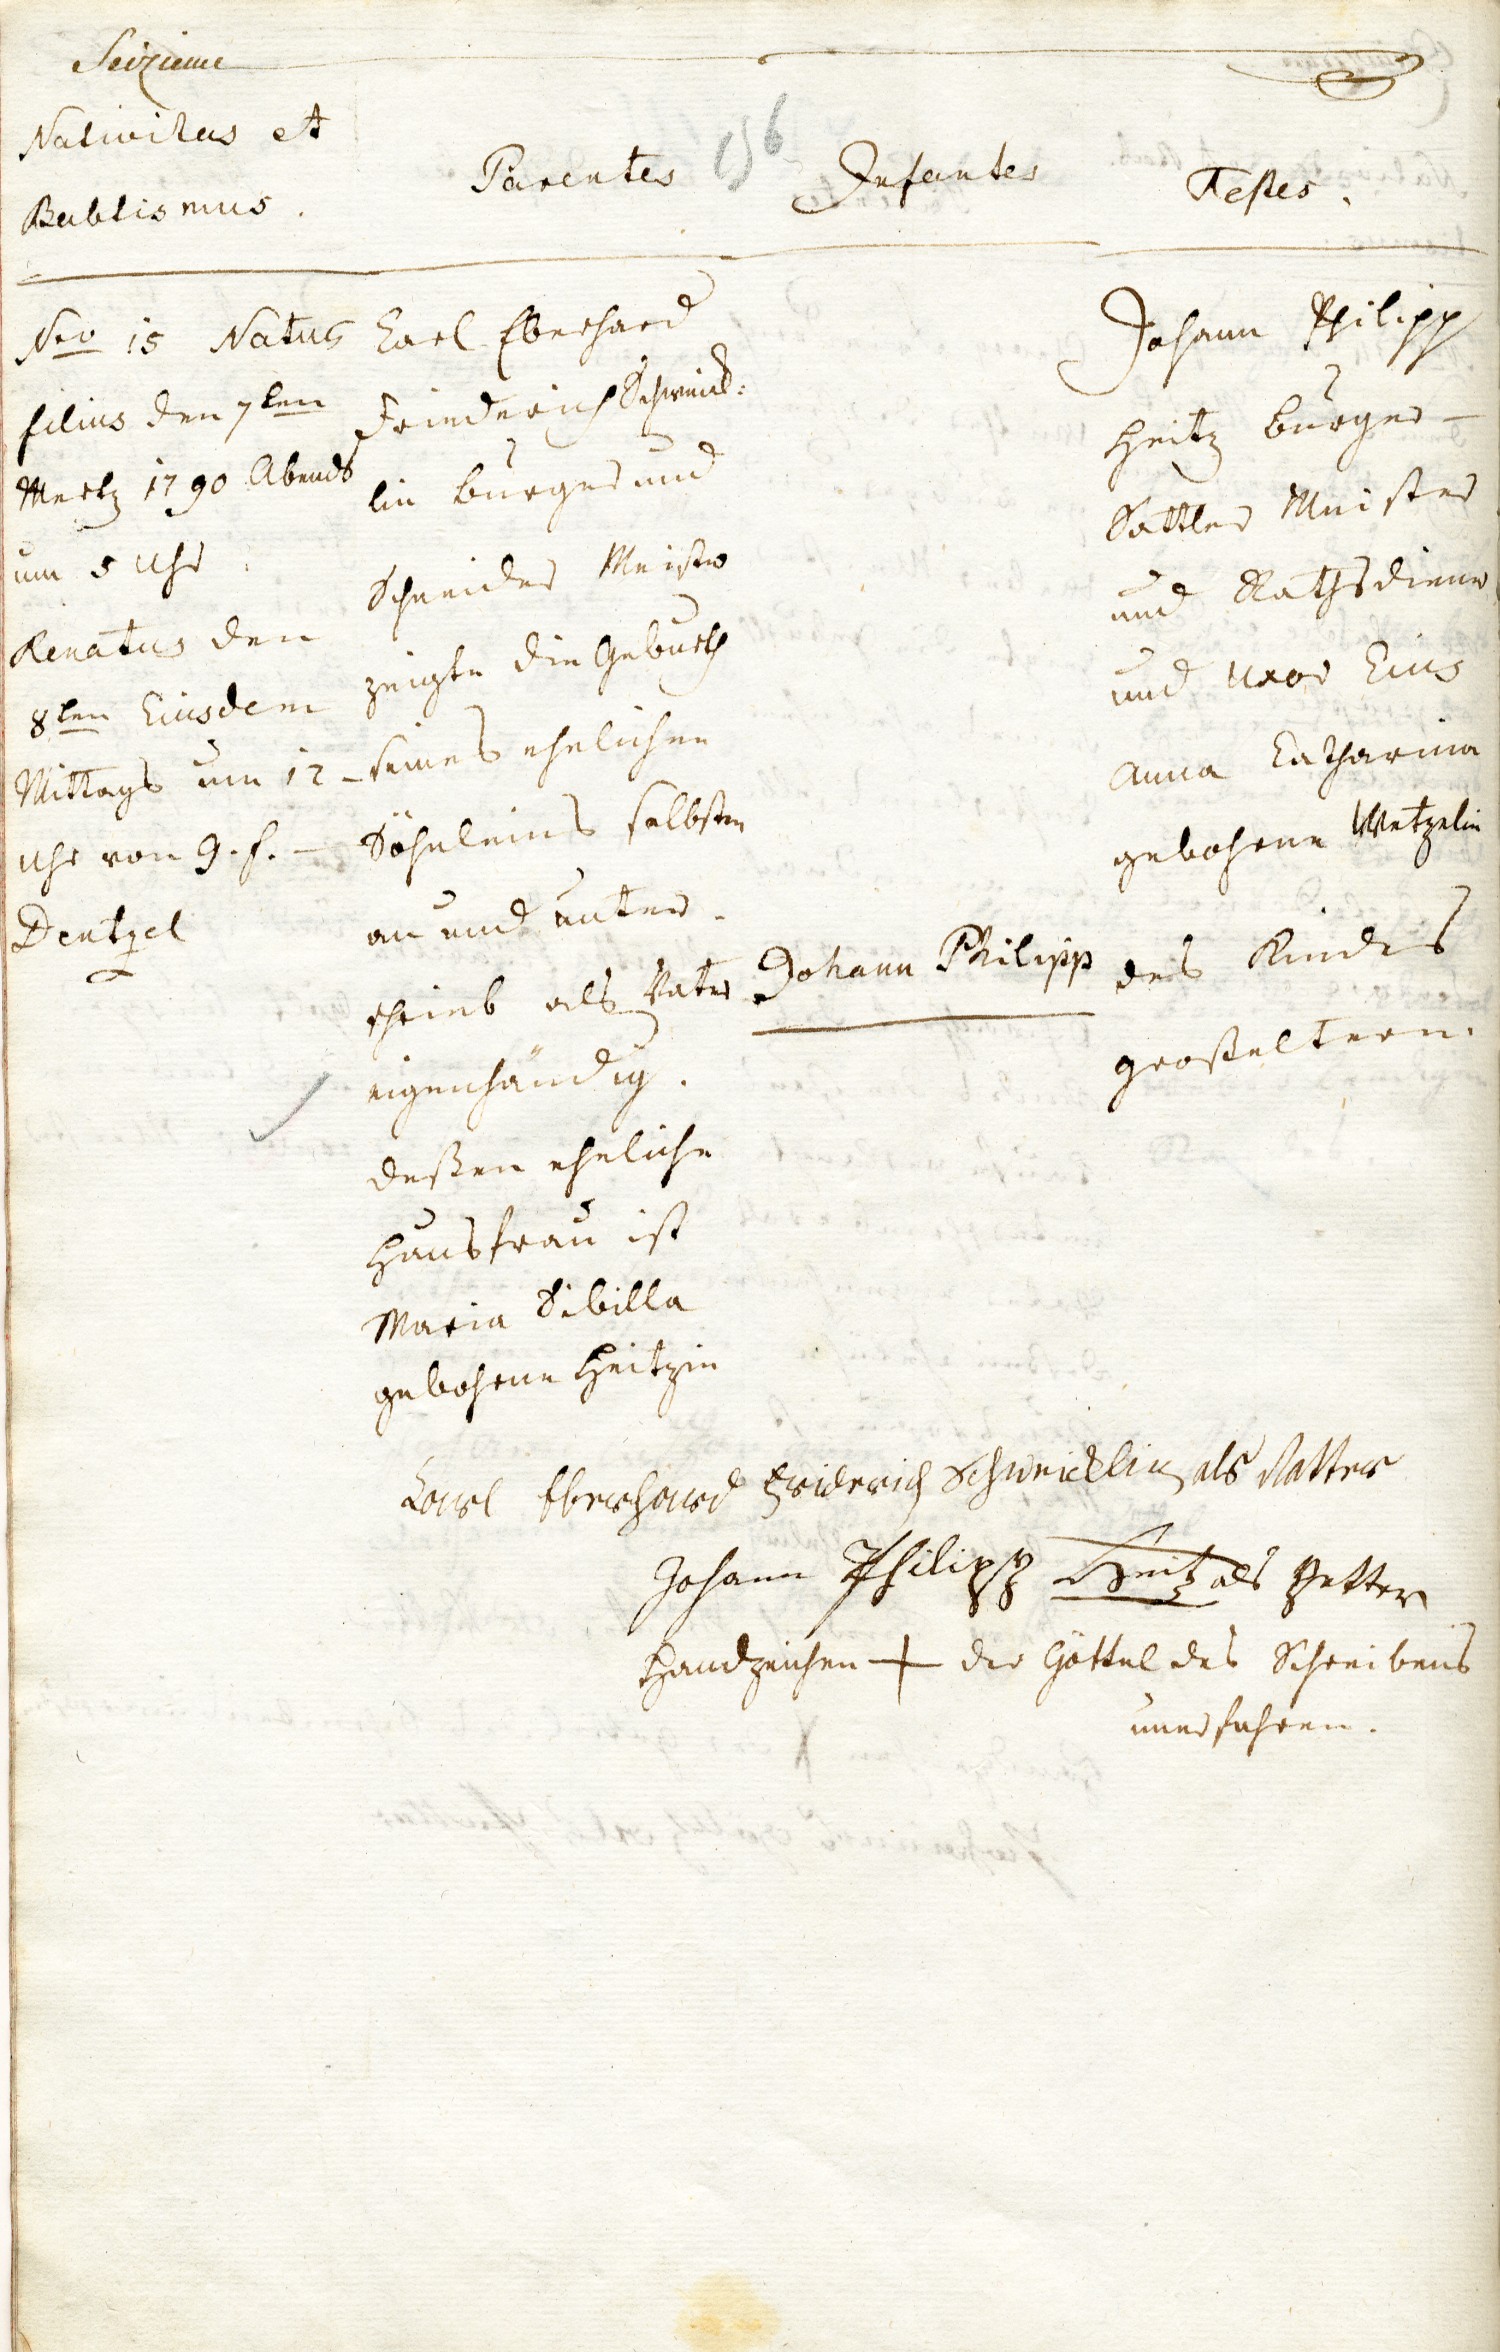 Seizieme
Nativitas et
Babtismus.
Parentes
156
Infantes
Testes.
Nro 15 Natus
filius den 7ten
Mertz 1790 Abends
um 5 Uhr
Renatus den
8ten Eiusdem
Mittags um 12
Uhr von g. f.
Dentzel
Carl Eberhard
Friederich Schweick-
lin burger und
Schneider Meister
zeigte die Geburth
seines ehelichen
Söhnleins selbsten
an und unter-
schrieb als Vater
eigenhändig.
deßen eheliche
Hausfrau ist
Maria Sibilla
gebohrene Heitzin
Johann Philipp
Johann Philipp
Heitz burger
Sattler Meister
und Rathsdiener
und Uxor Eius
Anna Catharina
gebohrene Wetzelin
des Kindes
großeltern.
Carl Eberhard Friderich Schweicklin als Vatter
Johann Philipp Heitz als Petter
Handzeichen + der Göttel des Schreibens
unerfahren.